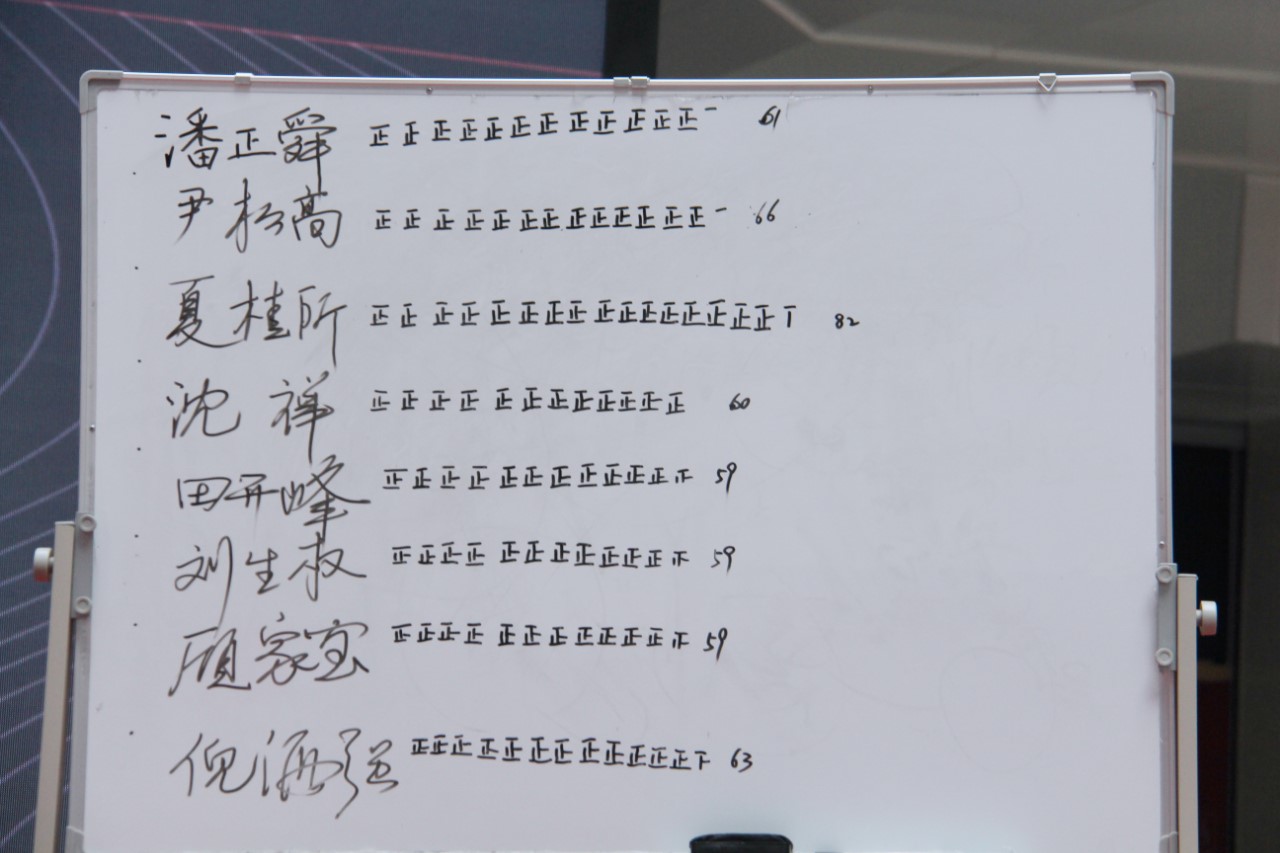 潘正舜 正正正正正正正正正正正正一 61
尹松高 正正正正正正正正正正正正正一 66
夏桂所 正正正正正正正正正正正正正正正正丅 82
沈祥 正正正正正正正正正正正正 60
田开峰 正正正正正正正正正正正止 59
刘生权 正正正正正正正正正正正止 59
顾家宝 正正正正正正正正正正正止 59
倪洒强 正正正正正正正正正正正正下 63